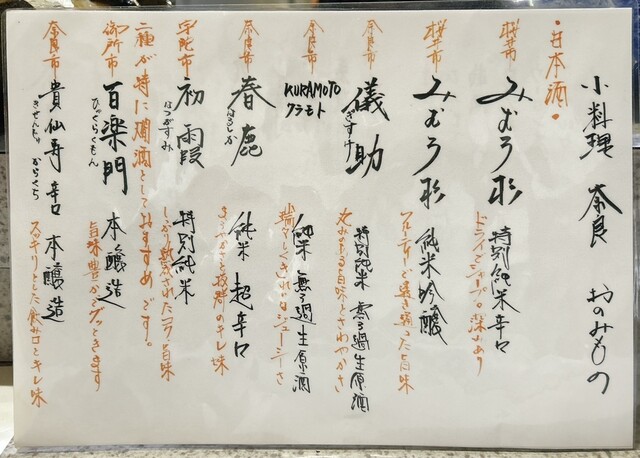 小料理 奈良 おのみもの
・日本酒・
桜井市 みむろ杉 特別純米辛口
ドライでシャープ。深みあり
桜井市 みむろ杉 純米吟醸
フルーティーで透き通った旨味
奈良市 儀助 特別純米 無ろ過生原酒
ぎすけ
ふくみある旨味とさわやかさ
奈良市 KURAMOTO 純米 無ろ過生原酒
クラモト
瑞々しくきれいなジューシーさ
奈良市 春鹿 純米 超辛口
はるしか
抜群のキレ味
宇陀市 初霞 特別純米
はつがすみ
しっかり熟成されたコク、旨味
二種が特に燗酒としておすすめです。
御所市 百楽門 本醸造
ひゃくらくもん
旨味豊かでグッときます
奈良市 貴仙寿 辛口 本醸造
きせんじゅ からくち
スッキリとした飲み口とキレ味